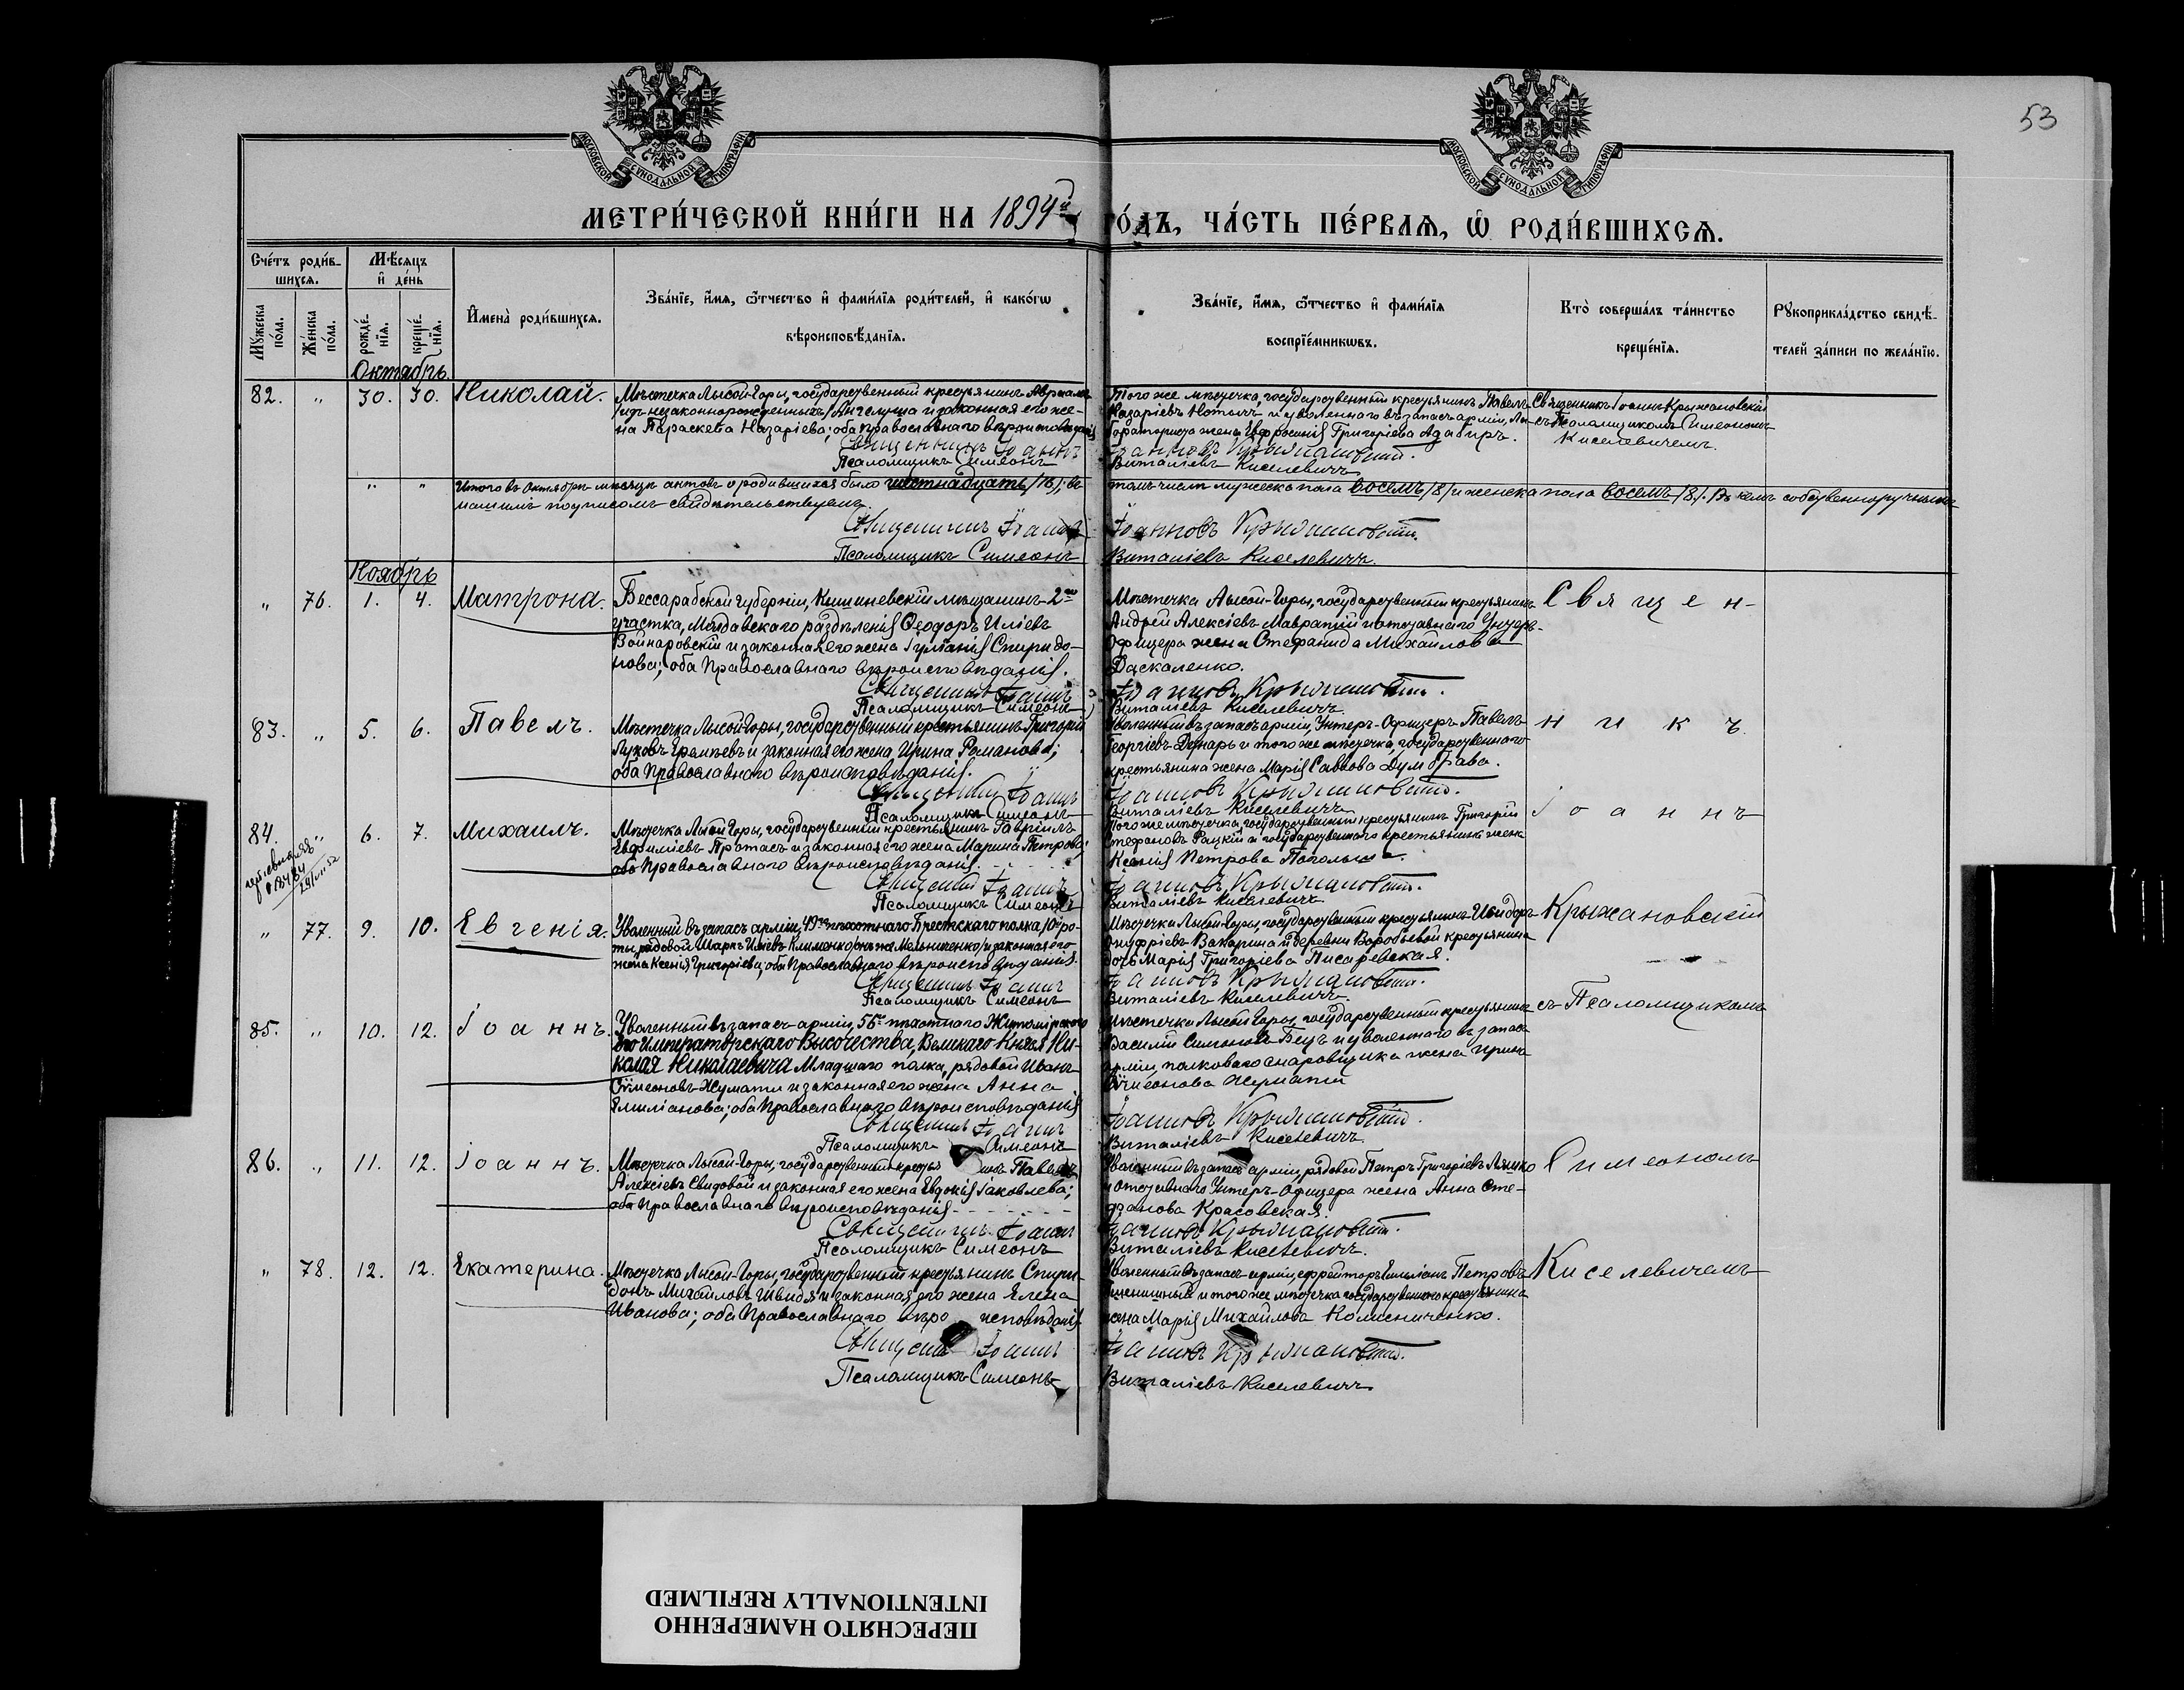 53
МОСКОВСКОЙ СѴНОДАЛЬНОЙ ТИПОГРАФІИ
МОСКОВСКОЙ СѴНОДАЛЬНОЙ ТИПОГРАФІИ
МЕТРИ́ЧЕСКОЙ КНИ́ГИ НА 1894й ГО́ДЪ, ЧА́СТЬ ПЕ́РВАѦ, Ѡ РОДИ́ВШИХСѦ.
Сче́тъ роди́в-
шихсѧ.
Мꙋжеска по́ла.
Же́нска по́ла.
Мѣ́сѧцъ
и҆ де́нь
рожде́-
нїѧ.
креще́-
нїѧ.
И҆мена̀ роди́вшихсѧ.
Зва́нїе, и҆́мѧ, ѻ҆́тчество и҆ фами́лїѧ роди́телей, и҆ како́гѡ
вѣроисповѣ́данїѧ.
Зва́нїе, и҆́мѧ, ѻ҆́тчество и҆ фами́лїѧ
воспрїе́мникѡвъ.
Кто̀ соверша́лъ та́инство
креще́нїѧ.
Рꙋкоприкла́дство свидѣ́-
телей за́писи по жела́нїю.
Октябрь.
82. " 30. 30. Николай.
Мѣстечка Лысой-Горы, государственный крестьянинъ
/изъ незаконнорожденныхъ/ и законная его же-
на Параскева Назаріева; оба православнаго вѣроисповѣданія
Священникъ Іоаннъ
Псаломщикъ Симеонъ
Того же мѣстечка, государственный крестьянинъ Павелъ
Назаріевъ и уволеннаго въ запасъ арміи,
жена Евфросинія Григоріева
Іанновъ Крыжановскій.
Виталіевъ Киселевичъ
Священникъ Іоаннъ Крыжановскій
съ Псаломщикомъ Симеономъ
Киселевичемъ.
" " Итого въ Октябрѣ мѣсяцѣ актовъ о родившихся было шестнадцать /16/; въ томъ числѣ мужеска пола восемъ /8/ и женска пола восемъ /8/. Въ чемъ собственноручнымъ
нашимъ подписомъ свидѣтельствуемъ.
Священникъ Іоаннъ Іоанновъ Крыжановскій.
Псаломщикъ Симеонъ Виталіевъ Киселевичъ.
Ноябрь
" 76. 1. 4. Матрона.
Бессарабской губерніи, Кишиневскій мѣщанинъ 2го
участка, Молдавскаго раздѣленія Ѳеодоръ Иліевъ
Войнаровскій и законная его жена Іуліанія Спиридо-
нова; оба Православнаго вѣроисповѣданія.
Священникъ Іоаннъ
Псаломщикъ Симеонъ
Мѣстечка Лысой-Горы, государственный крестьянинъ
Андрей Алексіевъ и отставнаго Унтеръ-
Офицера жена Стефанида Михаилова
Даскаленко.
Іоанновъ Крыжановскій.
Виталіевъ Киселевичъ.
Священ-
83. " 5. 6. Павелъ.
Мѣстечка Лысой-Горы, государственный крестьянинъ Григорій
Луковъ и законная его жена Ирина Романова;
оба Православнаго вѣроисповѣданія.
Священникъ Іоаннъ
Псаломщикъ Симеонъ
Уволенный въ запасъ арміи, Унтеръ-Офицеръ Павелъ
Георгіевъ и того же мѣстечка, государственнаго
крестьянина жена Марія Саввова Думбрава.
Іоанновъ Крыжановскій.
Виталіевъ Киселевичъ
никъ
84. " 6. 7. Михаилъ.
Мѣстечка Лысой Горы, государственный крестьянинъ Гавріилъ
Евфиміевъ Протасъ и законная его жена Марина Петрова;
оба Православнаго вѣроисповѣданія.
Священникъ Іоаннъ
Псаломщикъ Симеонъ
Того же мѣстечка, государственный крестьянинъ Григорій
Стефановъ Рацкій и государственнаго крестьянина жена
Ксенія Петрова
Іоанновъ Крыжановскій.
Виталіевъ Киселевичъ
Іоаннъ
" 77. 9. 10. Евгенія.
Уволенный въ запасъ арміи, 49го пѣхотнаго Брестскаго полка, 10й ро-
ты рядовой Маркъ Иліевъ Клименко /онъ же Мельниченко/ и законная его
жена Ксенія Григоріева; оба Православнаго вѣроисповѣданія.
Священникъ Іоаннъ
Псаломщикъ Симеонъ
Мѣстечка Лысой-Горы, государственный крестьянинъ Исидоръ
Онуфріевъ Вакарина и деревни Воробьевой крестьянина
дочь Марія Григоріева Писаревская.
Іоанновъ Крыжановскій.
Виталіевъ Киселевичъ.
Крыжановскій
85. " 10. 12. Іоаннъ.
Уволенный въ запасъ арміи, 56го пѣхотнаго Житомірскаго
Его Императорскаго Высочества, Великаго Князя Ни-
колая Николаевича Младшаго полка, рядовой Иванъ
Сѵмеоновъ Жумати и законная его жена Анна
Емиліанова; оба Православнаго вѣроисповѣданія
Священникъ Іоаннъ
Псаломщикъ Симеонъ
Мѣстечка Лысой Горы, государственный крестьянинъ
Василій Симоновъ и уволеннаго въ запасъ
арміи, полковаго жена Ирина
Сѵмеонова Жумати
Іоанновъ Крыжановскій.
Виталіевъ Киселевичъ.
съ Псаломщикомъ
86. " 11. 12. Іоаннъ.
Мѣстечка Лысой-Горы, государственный Павелъ
Алексіевъ Свидовой и законная его жена Евдокія Іаковлева;
оба Православнаго вѣроисповѣданія
Священникъ Іоаннъ
Псаломщикъ Симеонъ
Уволенный въ запасъ арміи, рядовой Петръ Григоріевъ Ляшко
и отставнаго Унтеръ-Офицера жена Анна Сте-
фанова Красовская.
Іоанновъ Крыжановскій.
Виталіевъ Киселевичъ.
Симеономъ
" 78. 12. 12. Екатерина.
Мѣстечка Лысой-Горы, государственный крестьянинъ Спири-
донъ Михайловъ Швидя и законная его жена Елена
Иванова; оба Православнаго вѣроисповѣданія.
Священникъ Іоаннъ
Псаломщикъ Симеонъ
Уволенный въ запасъ арміи, ефрейторъ Емиліанъ Петровъ
Пшеничный и того же мѣстечка государственнаго крестьянина
жена Марія Михайлова Колисниченко.
Іоанновъ Крыжановскій.
Виталіевъ Киселевичъ
Киселевичемъ
ПЕРЕСНЯТО НАМЕРЕННО
INTENTIONALLY REFILMED